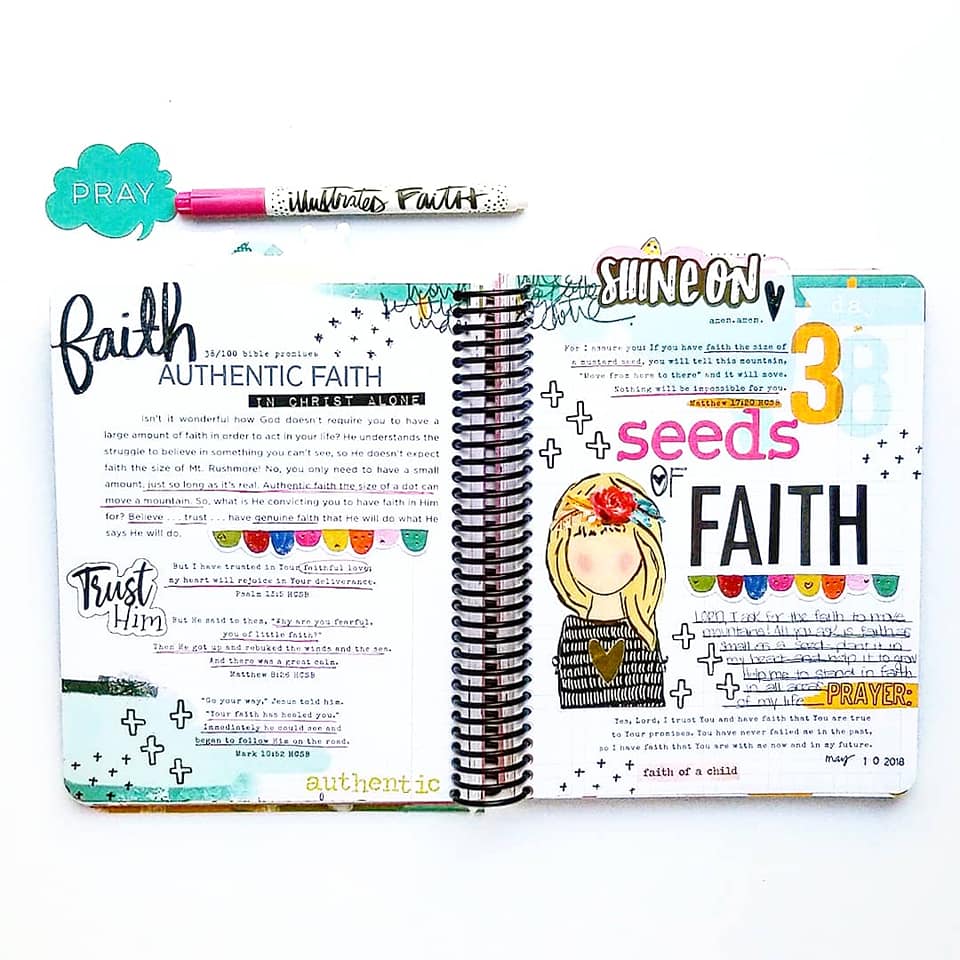 PRAY
illustrated FAITH
faith
38/100 bible promises
AUTHENTIC FAITH
IN CHRIST ALONE
Isn't it wonderful how God doesn't require you to have a
large amount of faith in order to act in your life? He understands the
struggle to believe in something you can't see, so He doesn't expect
faith the size of Mt. Rushmore! No, you only need to have a small
amount, just so long as it's real. Authentic faith the size of a dot can
move a mountain. So, what is He convicting you to have faith in Him
for? Believe . . . trust . . . have genuine faith that He will do what He
says He will do.
Trust
Him
But I have trusted in Your faithful love;
my heart will rejoice in Your deliverance.
Psalm 13:5 HCSB
But He said to them, "Why are you fearful,
you of little faith?"
Then He got up and rebuked the winds and the sea.
And there was a great calm.
Matthew 8:26 HCSB
"Go your way," Jesus told him.
"Your faith has healed you."
Immediately he could see and
began to follow Him on the road.
Mark 10:52 HCSB
authentic
SHINE ON
amen.amen.
day
38
For I assure you: If you have faith the size of
a mustard seed, you will tell this mountain,
"Move from here to there" and it will move.
Nothing will be impossible for you.
Matthew 17:20 HCSB
seeds
OF
FAITH
Lord, I ask for the faith to move
mountains! All you ask is faith as
small as a seed. plant it in
my heart and help it to grow
Help me to stand in faith
in all areas
of my life
PRAYER:
Yes, Lord, I trust You and have faith that You are true
to Your promises. You have never failed me in the past,
so I have faith that You are with me now and in my future.
may 10 2018
faith of a child